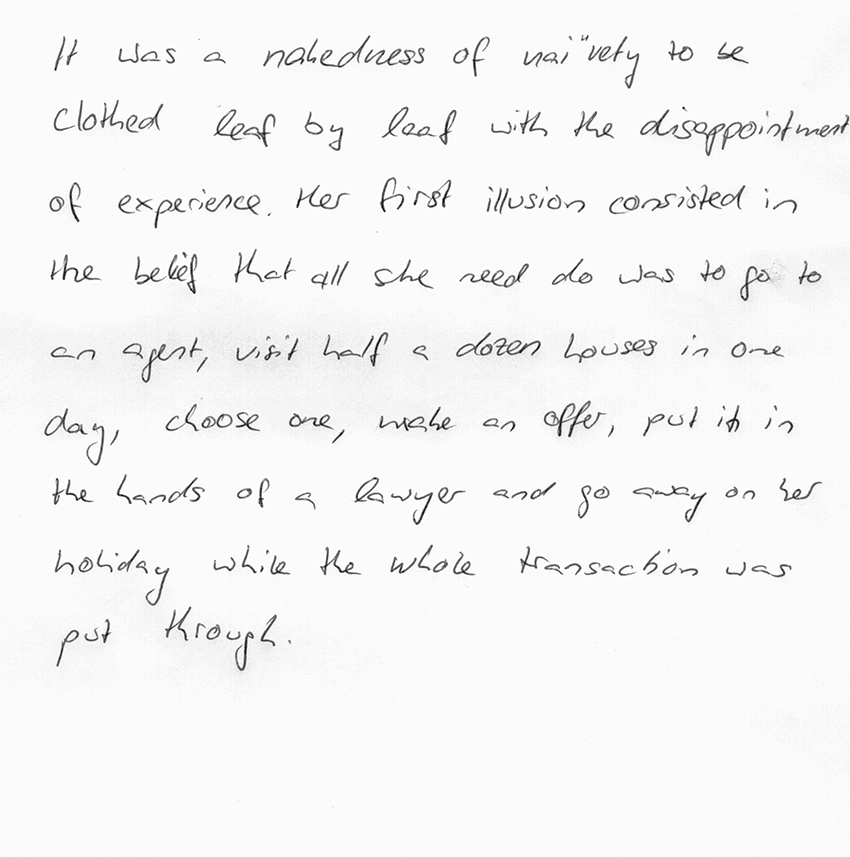 It was a nakedness of naïvety to be
clothed leaf by leaf with the disappointment
of experience. Her first illusion consisted in
the belief that all she need do was to go to
an agent, visit half a dozen houses in one
day, choose one, make an offer, put it in
the hands of a lawyer and go away on her
holiday while the whole transaction was
put through.